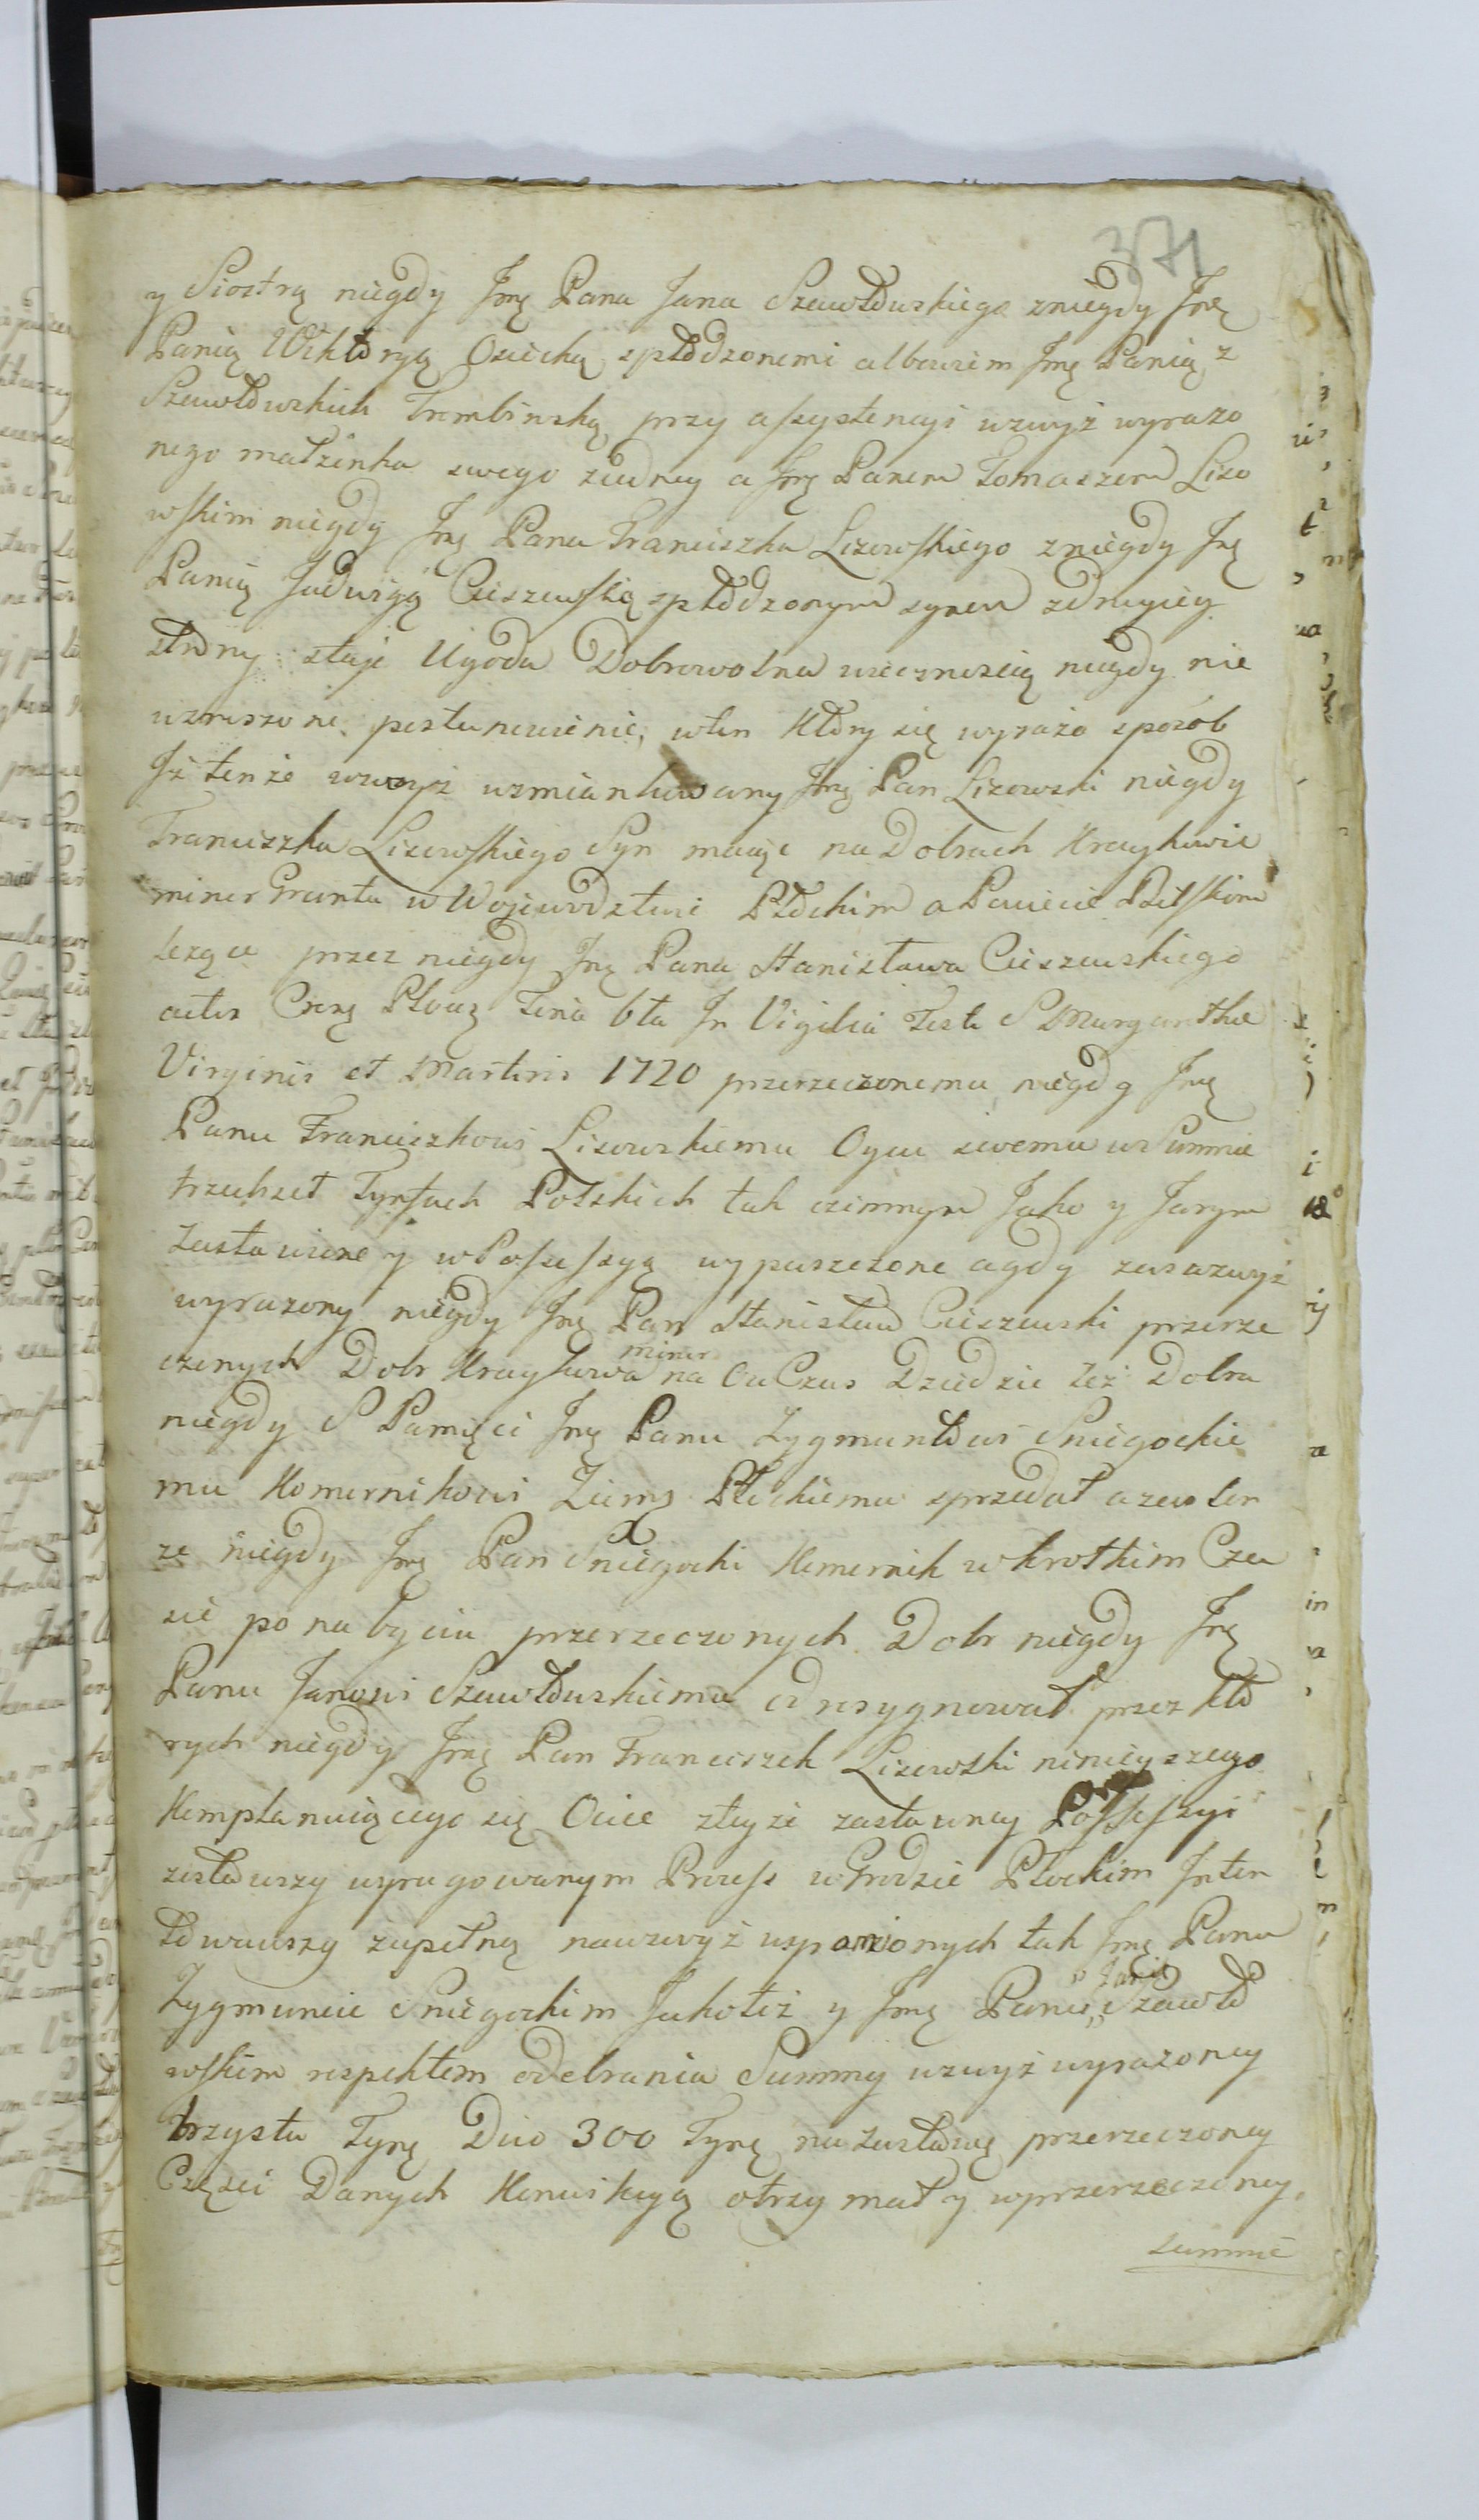 371
y Siostrą niegdy Jmę Pana Jana Szawłowskiego zniegdy Jmę
Panią Wiktoryą Osiecką spłodzonemi albowiem Jmę Panią z
Szawłowskich Trembinską przy assystencyi wzwyż wyrażo
nego małżonka swego ziedney a Jmę Panem Tomaszem Liso
wskim niegdy Jmę Pana Franciszka Lisowskiego zniegdy Jmę
Panią Jadwigą Cieszewską spłodzonym synem zdrugiey
strony staje Ugoda Dobrowolna wiecznością nigdy nie
wzruszone postanowienie, wten Który się wyraża sposób
Iż tenże wwyż wzmiankowany Jmę Pan Lisowski niegdy
Franciszka Lisowskiego Syn maiąc na Dobrach Kraykowie
minor Grunta w Wojewodztwie Płockim a Powiecie Bielskim
leżące przez niegdy Jmę Pana Stanisława Cieszewskiego
actis Płoc Feria 6ta In Vigilia Festi S Margarithe
Virginis et Martiris 1720 przerzeczonemu niegdy Jmę
Panu Franciszkowi Lisowskiemu Oycu swemu w Summie
trzechset Tynfach Polskich tak ozimnym Jako y Jarym
Zastawione y w Possessyą wypuszczone a gdy zaś wzwyż
wyrażony niegdy Jmę Pan Stanisław Cieszewski przerze
czonych Dobr Kraykowa minor na On Czas Dziedzic też Dobra
niegdy S Pamięci Jmę Panu Zygmuntowi Sniegockie
mu Komornikowi Ziemę Płockiemu sprzedał a zaś ten
że niegdy Jmę Pan Sniegocki Komornik wkrotkim Cza
sie po nabyciu przerzeczonych Dobr niegdy Jmę
Panu Janowi Szawłowskiemu odresygnował przez któ
rych niegdy Jmę Pan Franciszek Lisowski ninieyszego
Komplanuiącego się Ociec ztyże zastawney Possessyi
zostawszy wyrugowanym Process w Grodzie Płockim Inten
towawszy zupełną nawzwyż wspomionych tak Jmę Panu
Zygmuncie Sniegockim Jako też y Jmę Panie Janie Szawło
wskim respektem odebrania Summy wzwyż wyrażoney
trzysta Tynę Dico 300 Tynę na Zastawę przerzeczoney
Części Danych Konwikcyą otrzymał y wprzerzeczoney
Summie